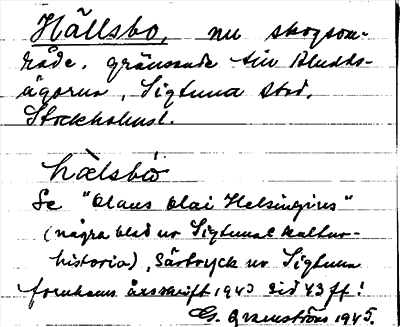 Hällsbo, nu skogsom-
råde, gränsande till
ägorna, Sigtuna stad,
Stockholmsl.
hælsbö
Se "Olaus Olai Helsingius"
(några blad ur Sigtunas kultur-
historia), Särtryck ur Sigtuna
fornhems årsskrift 1943 sid 43 ff!
G. Granström 1945.